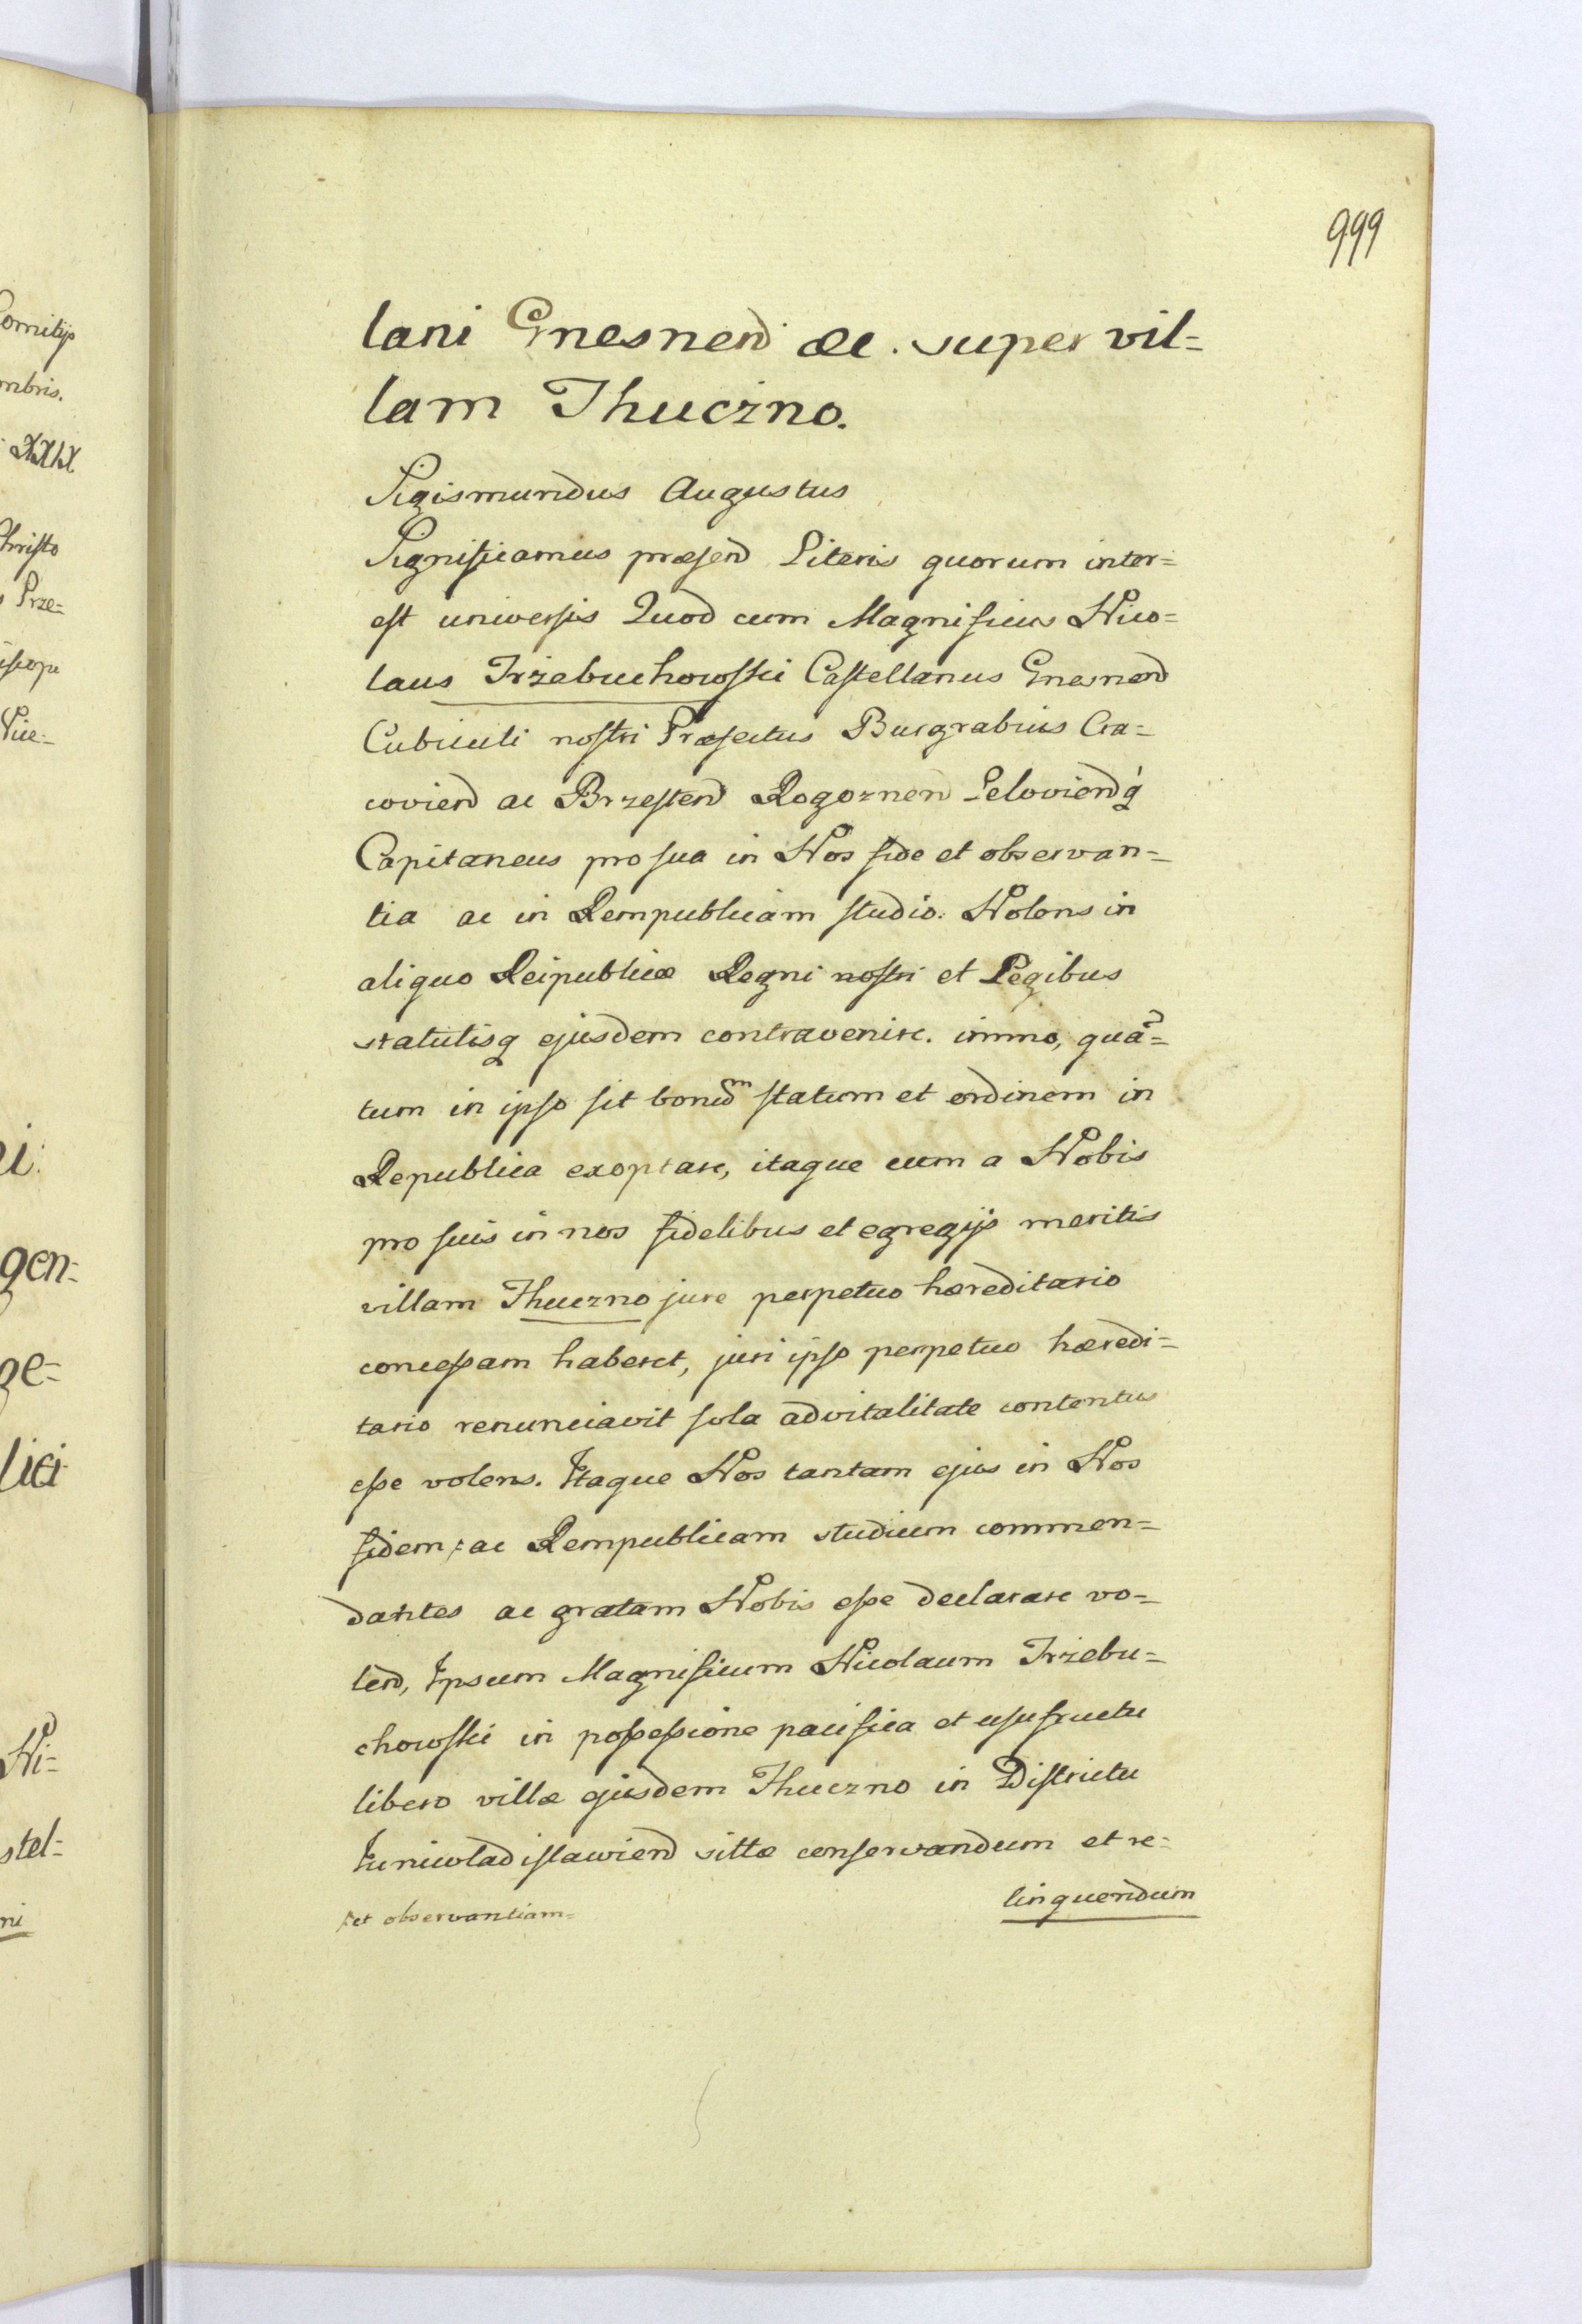 999
lani Gnesnen æc. super vil=
lam Thuczno.
Sigismundus Augustus
Significamus præsen Literis quorum inter=
est universis Quod cum Magnificus Nico=
laus Trzebuchowski Castellanus Gnesnen
Cubiculi nostri Præfectus Burgrabius Cra=
covien ac Brzesten Rogoznen Lelovienq
Capitaneus pro sua in Nos fide et observan=
tia ac in Rempublicam studio. Nolens in
aliquo Reipublicæ Regni nostri et Legibus
statutisq ejusdem contravenire. immo, quã=
tum in ipso sit bonũm statum et ordinem in
Republica exoptare, itaque cum a Nobis
pro suis in nos fidelibus et egregijs meritis
villam Thuczno jure perpetuo hæreditario
concessam haberet, juri ipso perpetuo hæredi=
tario renunciavit sola advitalitate contentus
esse volens. Itaque Nos tantam ejus in Nos
fidem, ac Rempublicam studium commen=
dantes ac gratam Nobis esse declarare vo=
len, Ipsum Magnificum Nicolaum Trzebu=
chowski in possessione pacifica et usufructu
libero villæ ejusdem Thuczno in Districtu
Juniwladislawien sittæ conservandum et re=
et observantiam=
linquendum
omitijs
mbris.
XXIX
Christo
Prze=
Vice=
gen=
ge=
lici
Ni=
stel=
ni